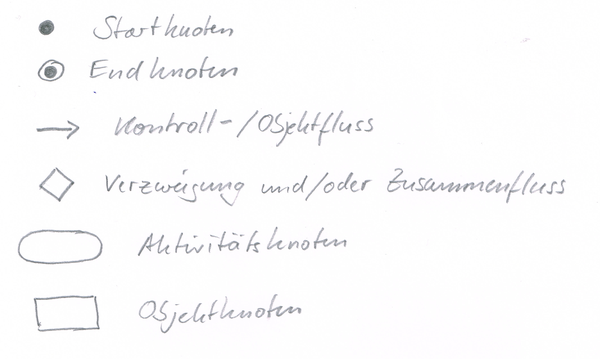 Startknoten
Endknoten
Kontroll-/Objektfluss
Verzweigung und/oder Zusammenfluss
Aktivitätsknoten
Objektknoten